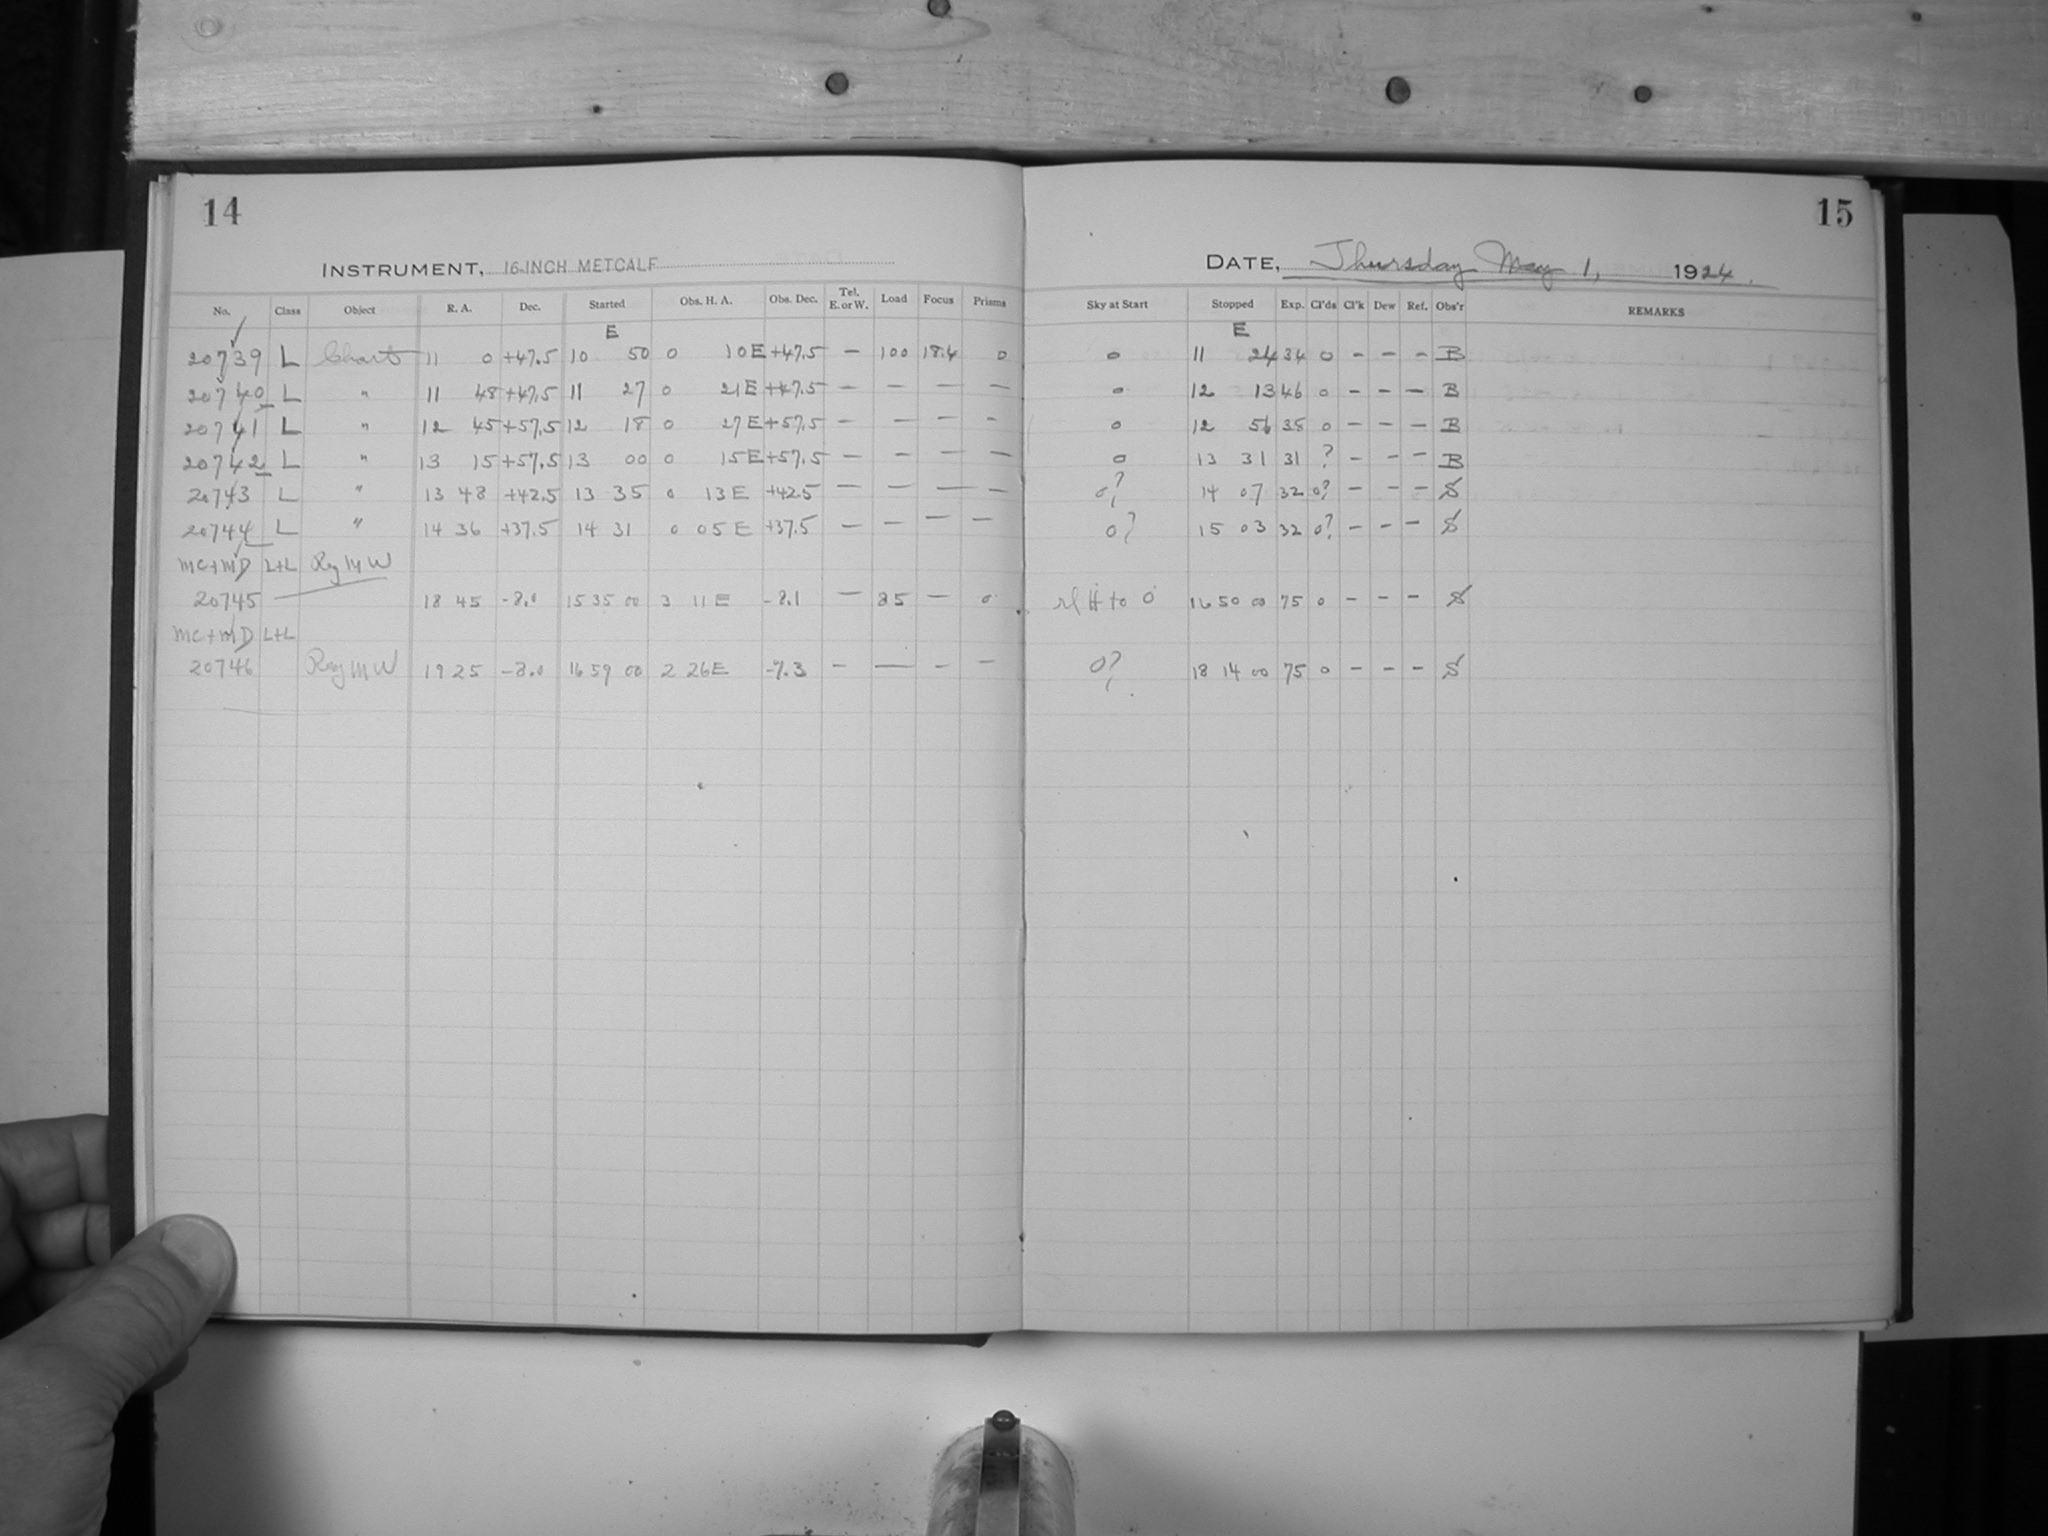 14
INSTRUMENT, 16-INCH METCALF
No. Class Object R. A. Dec. Started Obs. H. A. Obs. Dec. Tel. E. or W. Load Focus Prisms
E
20739 L Chart 11 0 +47.5 10 50 0 10 E +47.5 — 100 18.4 0
20740 L " 11 48 +47.5 11 27 0 21 E +47.5 — — — —
20741 L " 12 45 +57.5 12 18 0 27 E +57.5 — — — —
20742 L " 13 15 +57.5 13 00 0 15 E +57.5 — — — —
20743 L " 13 48 +42.5 13 35 0 13 E +42.5 — — — —
20744 L " 14 36 +37.5 14 31 0 05 E +37.5 — — — —
MC+MD L+L Reg MW
20745 18 45 -8.0 15 35 00 3 11 E -8.1 — 85 — 0
MC+MD L+L
20746 Reg MW 19 25 -8.0 16 59 00 2 26 E -7.3 — — — —
15
DATE, Thursday May 1, 1924.
Sky at Start Stopped Exp. Cl'ds Cl'k Dew Ref. Obs'r REMARKS
E
0 11 24 34 0 – – – B
0 12 13 46 0 – – – B
0 12 56 38 0 – – – B
0 13 31 31 ? – – – B
0? 14 07 32 0? – – – S
0? 15 03 32 0? – – – S
to 0 16 50 00 75 0 – – – S
0? 18 14 00 75 0 – – – S